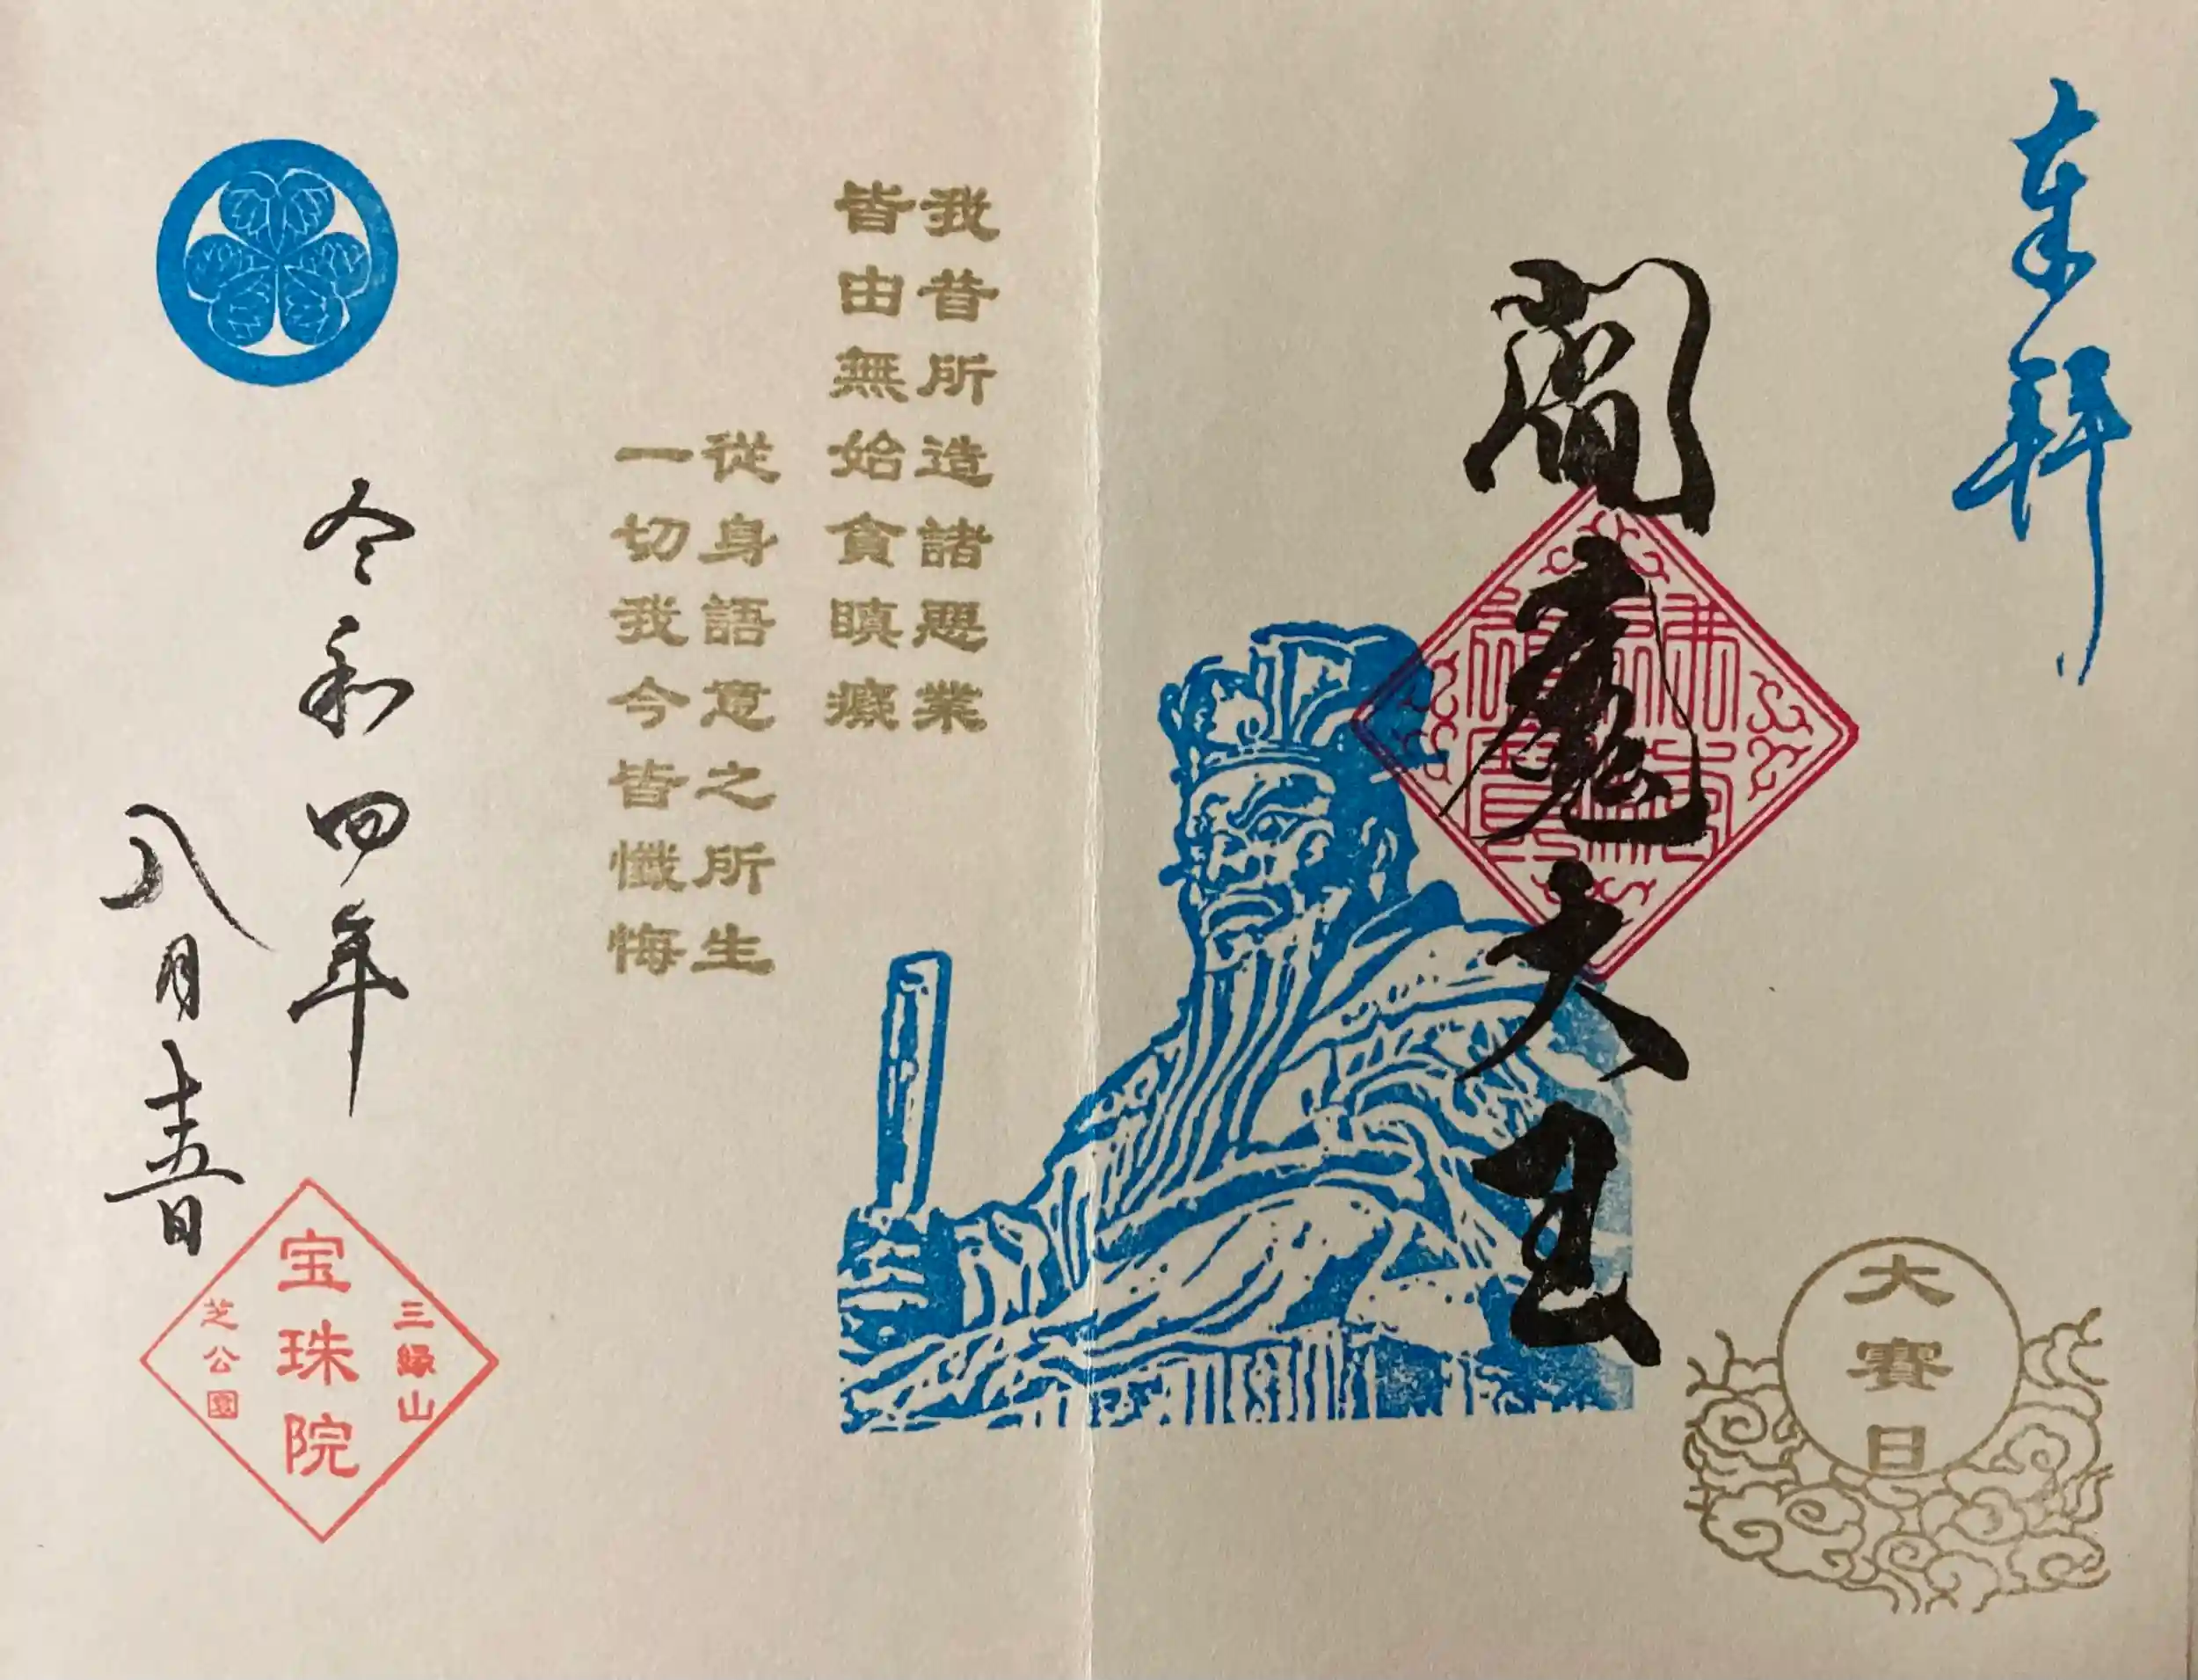 奉拝
閻魔大王
大賽日
我昔所造諸悪業
皆由無始貪瞋癡
從身語意之所生
一切我今皆懺悔
令和四年
八月十五日
三縁山
宝珠院
芝公園